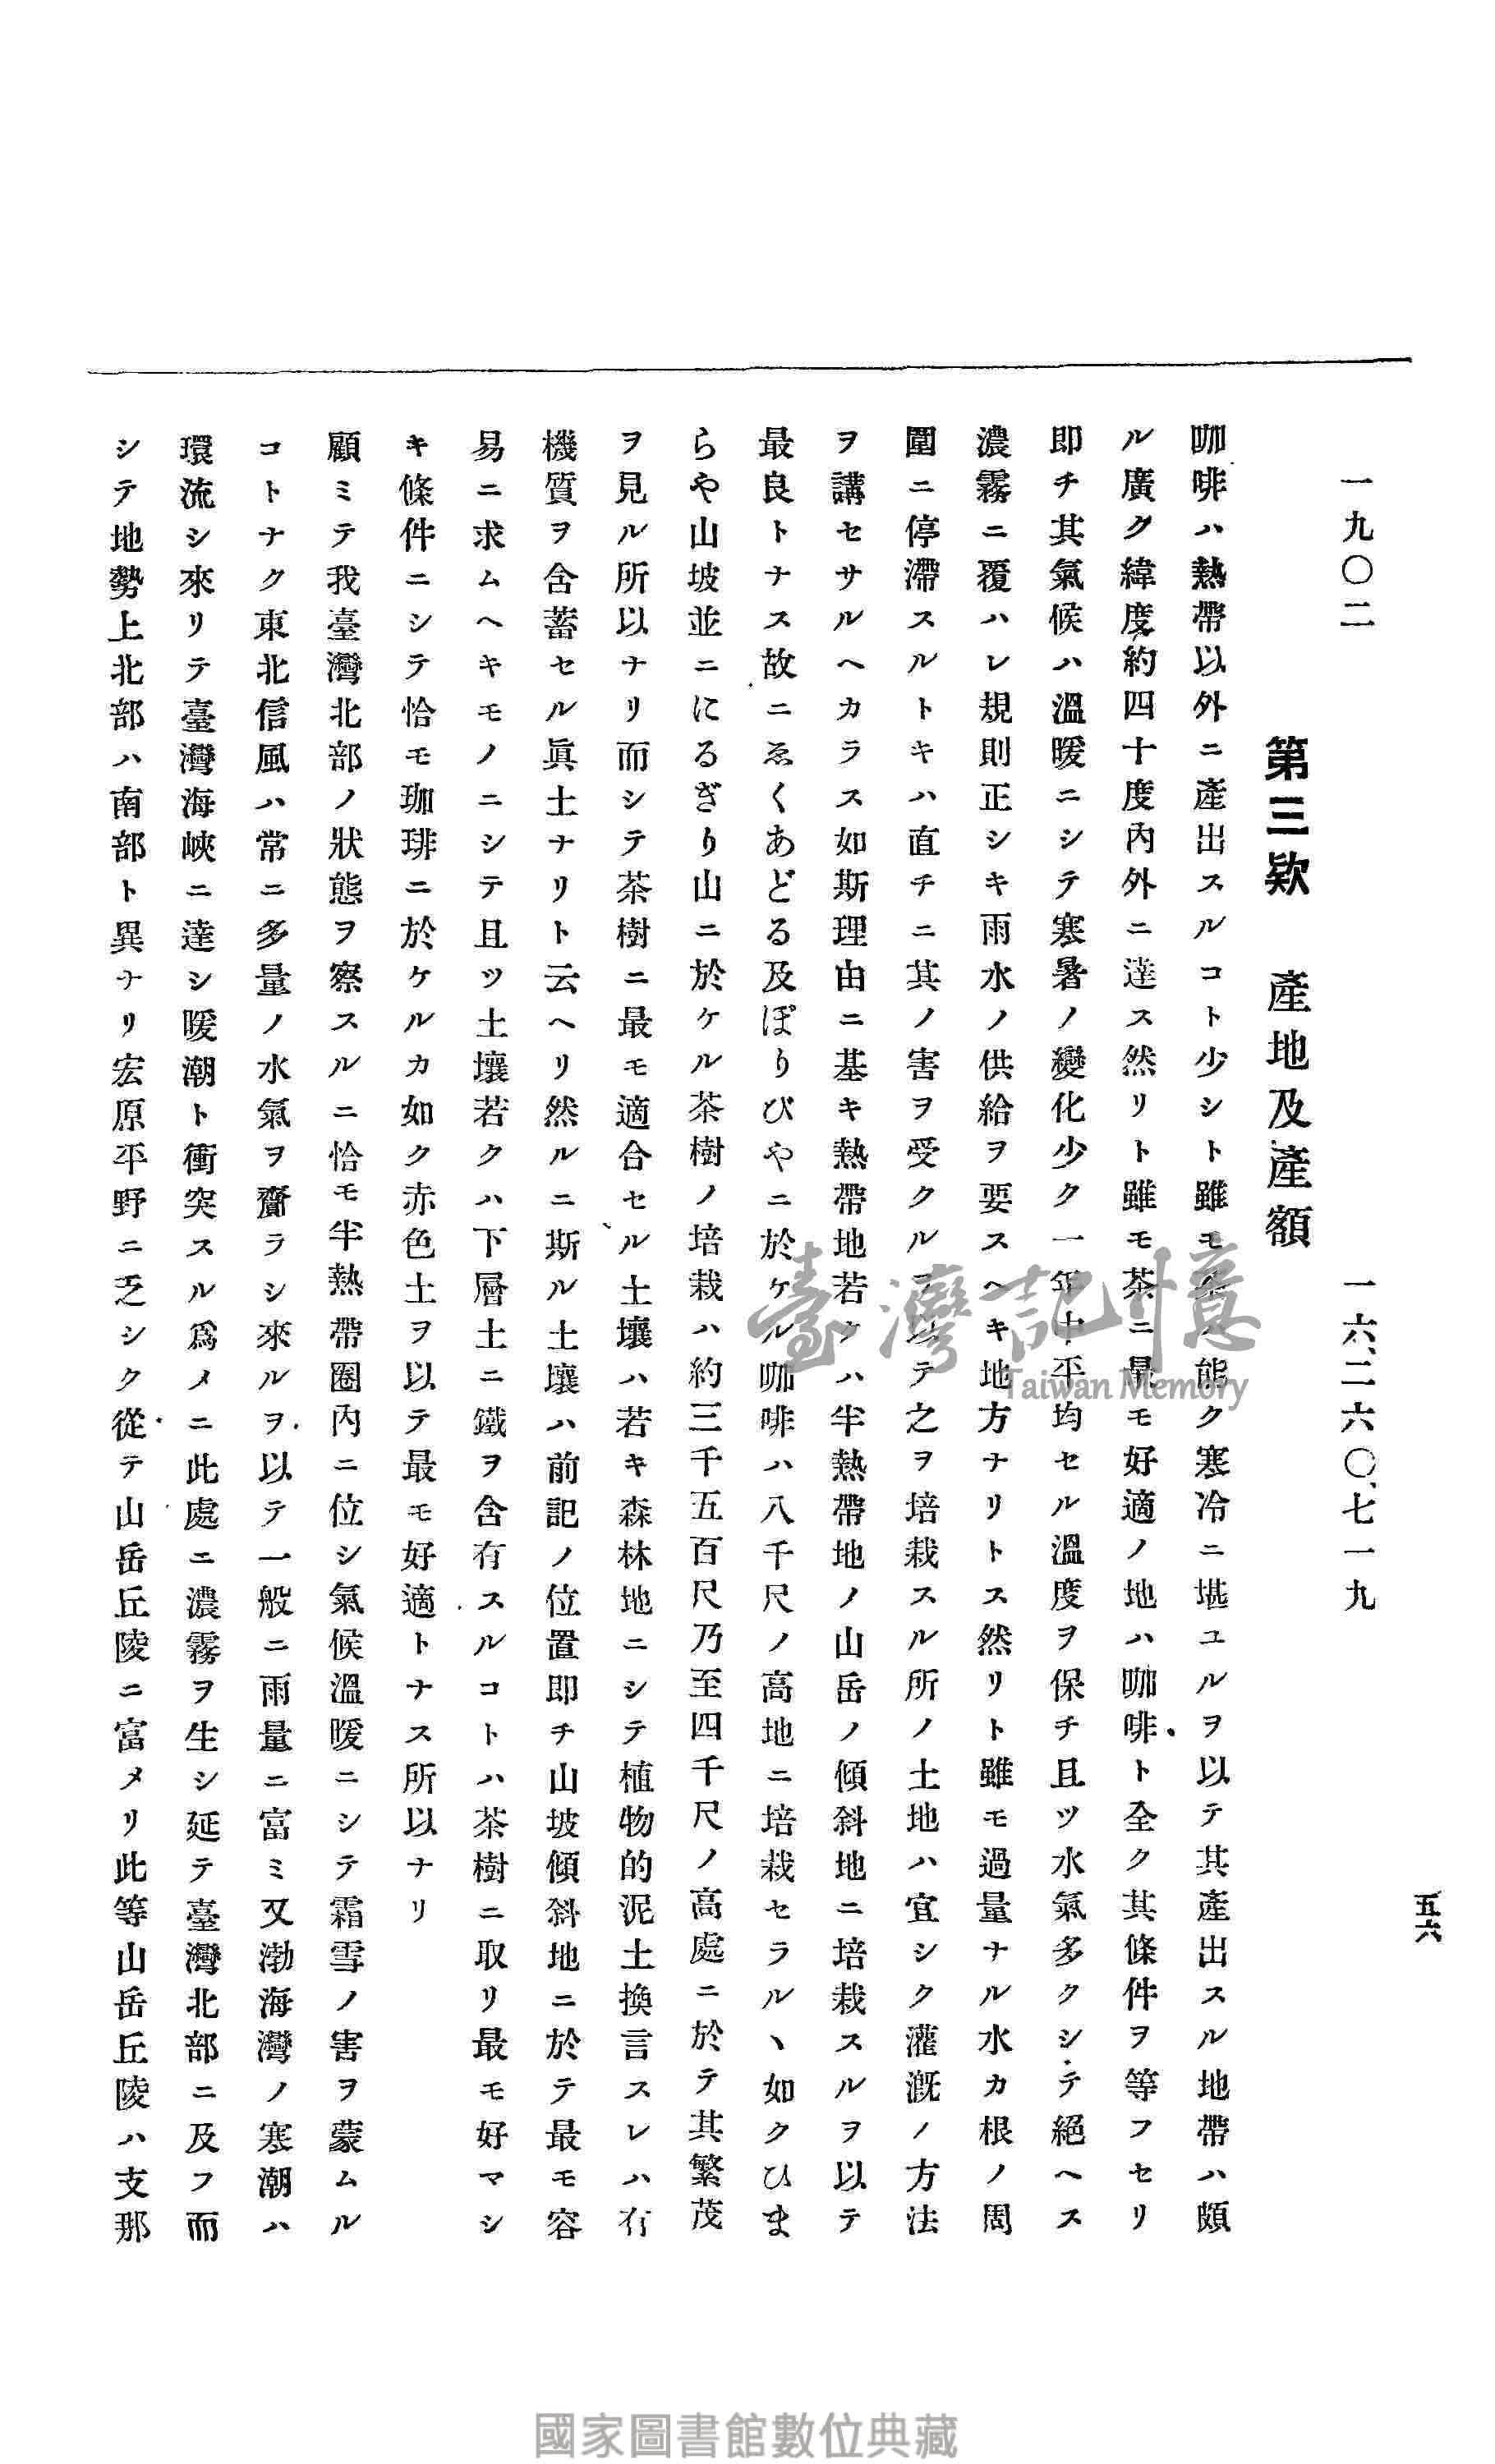 五六
一九〇二 一六、二六〇、七一九
第三欵 產地及產額
咖啡ハ熱帶以外ニ產出スルコト少シト雖モ茶ハ能ク寒冷ニ堪ユルヲ以テ其產出スル地帶ハ頗
ル廣ク緯度約四十度內外ニ達ス然リト雖モ茶ニ最モ好適ノ地ハ咖啡ト全ク其條件ヲ等フセリ
即チ其氣候ハ溫暖ニシテ寒暑ノ變化少ク一年中平均セル溫度ヲ保チ且ツ水氣多クシテ絕ヘス
濃霧ニ覆ハレ規則正シキ雨水ノ供給ヲ要スヘキ地方ナリトス然リト雖モ過量ナル水カ根ノ周
圍ニ停滯スルトキハ直チニ其ノ害ヲ受クルヲ以テ之ヲ培栽スル所ノ土地ハ宜シク灌漑ノ方法
ヲ講セサルヘカラス如斯理由ニ基キ熱帶地若クハ半熱帶地ノ山岳ノ傾斜地ニ培栽スルヲ以テ
最良トナス故ニゑくあどる及ぼりびやニ於ケル咖啡ハ八千尺ノ高地ニ培栽セラルヽ如クひま
らや山坡並ニにるぎり山ニ於ケル茶樹ノ培栽ハ約三千五百尺乃至四千尺ノ高處ニ於テ其繁茂
ヲ見ル所以ナリ而シテ茶樹ニ最モ適合セル土壤ハ若キ森林地ニシテ植物的泥土換言スレハ有
機質ヲ含蓄セル眞土ナリト云ヘリ然ルニ斯ル土壤ハ前記ノ位置即チ山坡傾斜地ニ於テ最モ容
易ニ求ムヘキモノニシテ且ツ土壤若クハ下層土ニ鐵ヲ含有スルコトハ茶樹ニ取リ最モ好マシ
キ條件ニシテ恰モ珈琲ニ於ケルカ如ク赤色土ヲ以テ最モ好適トナス所以ナリ
顧ミテ我臺灣北部ノ狀態ヲ察スルニ恰モ半熱帶圈內ニ位シ氣候溫暖ニシテ霜雪ノ害ヲ蒙ムル
コトナク東北信風ハ常ニ多量ノ水氣ヲ齎ラシ來ルヲ以テ一般ニ雨量ニ富ミ又渤海灣ノ寒潮ハ
環流シ來リテ臺灣海峽ニ達シ暖潮ト衝突スル爲メニ此處ニ濃霧ヲ生シ延テ臺灣北部ニ及フ而
シテ地勢上北部ハ南部ト異ナリ宏原平野ニ乏シク從テ山岳丘陵ニ富メリ此等山岳丘陵ハ支那
臺灣記憶
Taiwan Memory
國家圖書館數位典藏